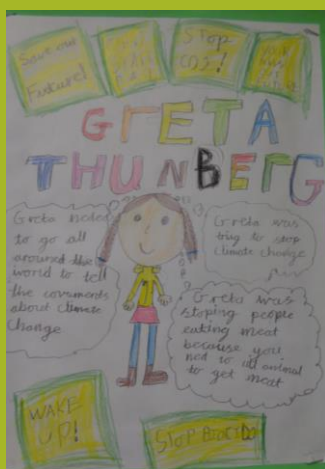 Save our
Future!
STOP
CO2!
GrETA
THUNBErG
Greta needed
to go all
around the
world to tell
the coverments
about climate
Change
Greta was
triy to stop
climate change
Greta was
stoping people
eating meat
because you
ned to kill animal
to get meat
WAKE
UP!
STOP